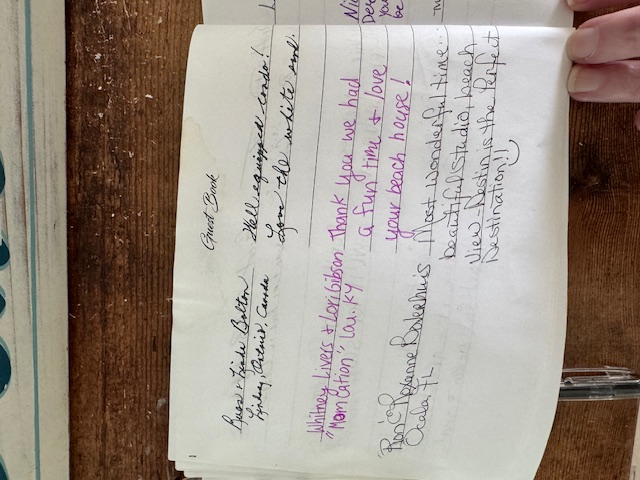 Guest Book
Russ + Linda Bolton Well equipped condo!
Lindsay, Ontario, Canada Love the white sand.
Whitney Livers + Lori Gibson Thank you we had
"Mom Cation" Lou. KY a fun time + love
your beach house!
Ron & Roxanne Most wonderful time...
Ocala, FL beautiful studio, beach
View - Destin is the Perfect
Destination!!